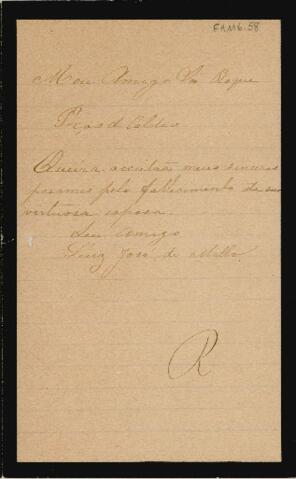 FAM6-58
Meu Amigo Snr Roque
Poços de Caldas
Queira acceitar meus sinceros
pesames pelo fallecimento de sua
virtuosa esposa.
Seu Amigo
Luiz José de Mello.
R